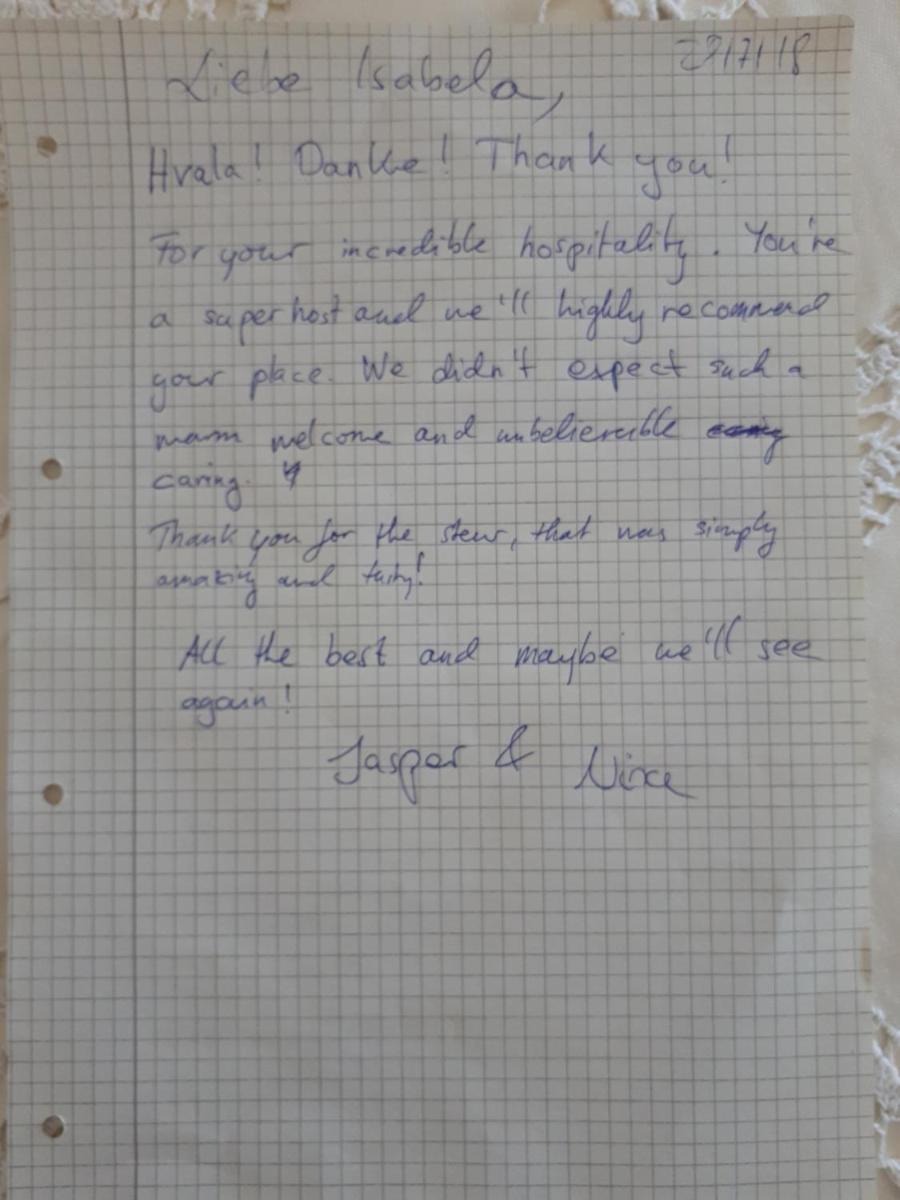 29/7/18
Liebe Isabela,
Hvala! Danke! Thank you!
For your incredible hospitality. You're
a superhost and we'll highly recommend
your place. We didn't expect such a
warm welcome and unbelievable
caring.
Thank you for the stew, that was simply
amazing and tasty!
All the best and maybe we'll see
again!
Jasper & Nina